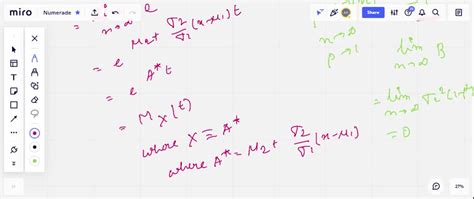 miro
Numerade
Share
= lim e
n→∞
μ2+ σ2/σ1 (x-μ1) t
= e
A* t
= e
= M_X(t)
where X ≡ A*
where A* = μ2+ σ2/σ1 (x-μ1)
n→∞
ρ→1
lim B
n→∞
= lim σ2²(1-ρ²
n→∞
= 0
27%